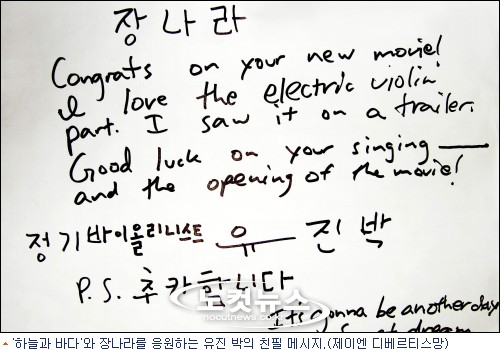 장나라
Congrats on your new movie!
I love the electric violin
part. I saw it on a trailer.
Good luck on your singing —
and the opening of the movie!
정기바이올리니스트 유진박
P.S. 추카합니다
It's gonna be another day
노컷뉴스
nocutnews.com
'하늘과 바다'와 장나라를 응원하는 유진 박의 친필 메시지.(제이엔 디베르티스망)